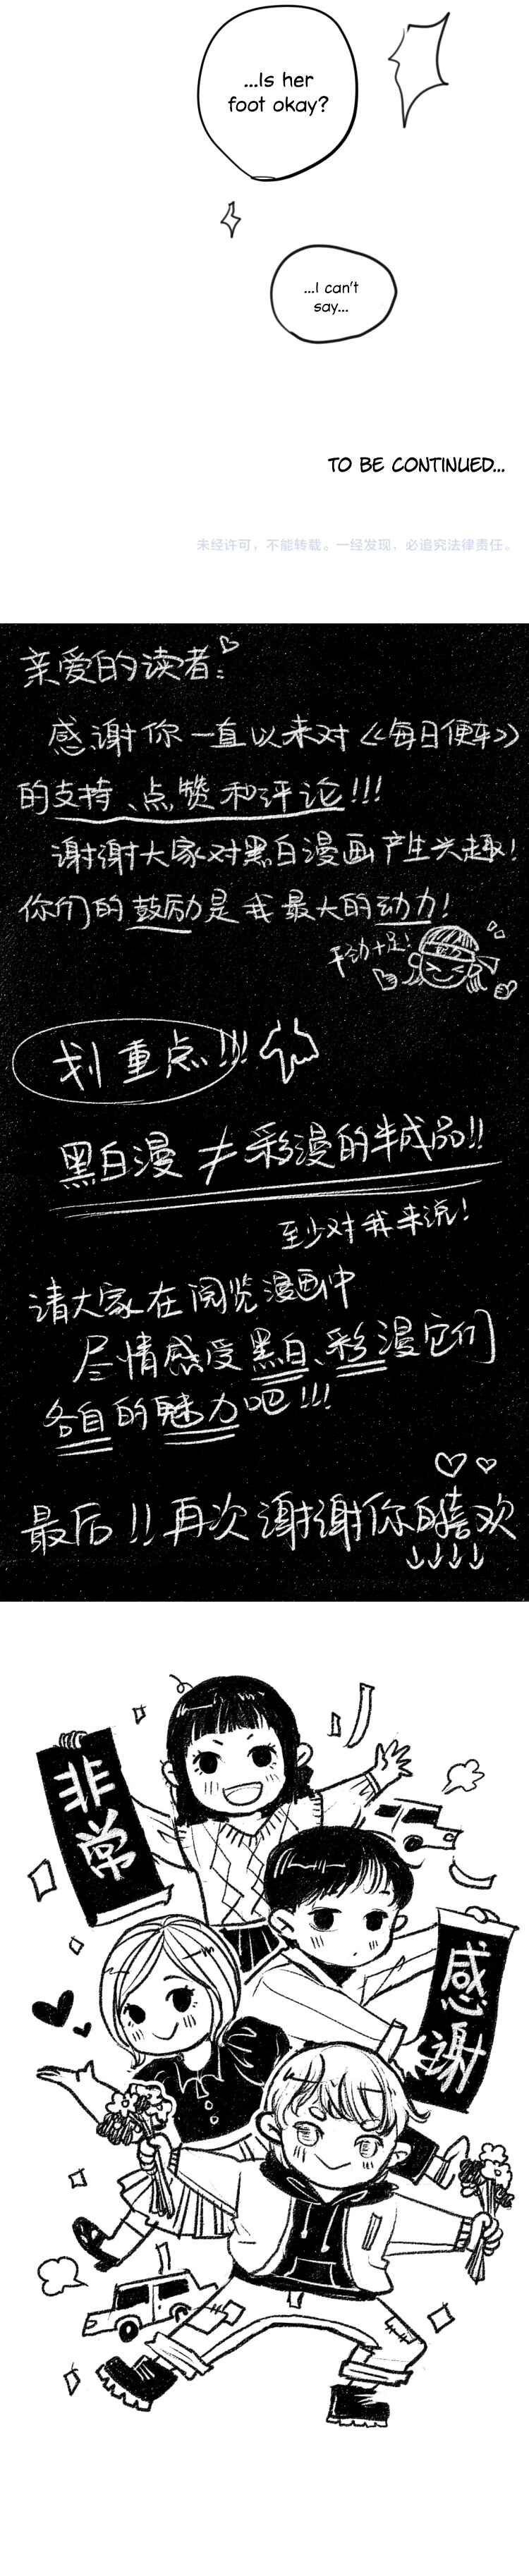 ...Is her
foot okay?
...I can't
say...
TO BE CONTINUED...
未经许可，不能转载。一经发现，必追究法律责任。
亲爱的读者：
感谢你一直以来对《每日便车》
的支持、点赞和评论!!!
谢谢大家对黑白漫画产生兴趣!
你们的鼓励是我最大的动力!
干劲十足!
划重点!!!
黑白漫≠彩漫的半成品!!
至少对我来说!
请大家在阅览漫画中
尽情感受黑白、彩漫它们
各自的魅力吧!!!
最后!!再次谢谢你的喜欢
非常
感谢